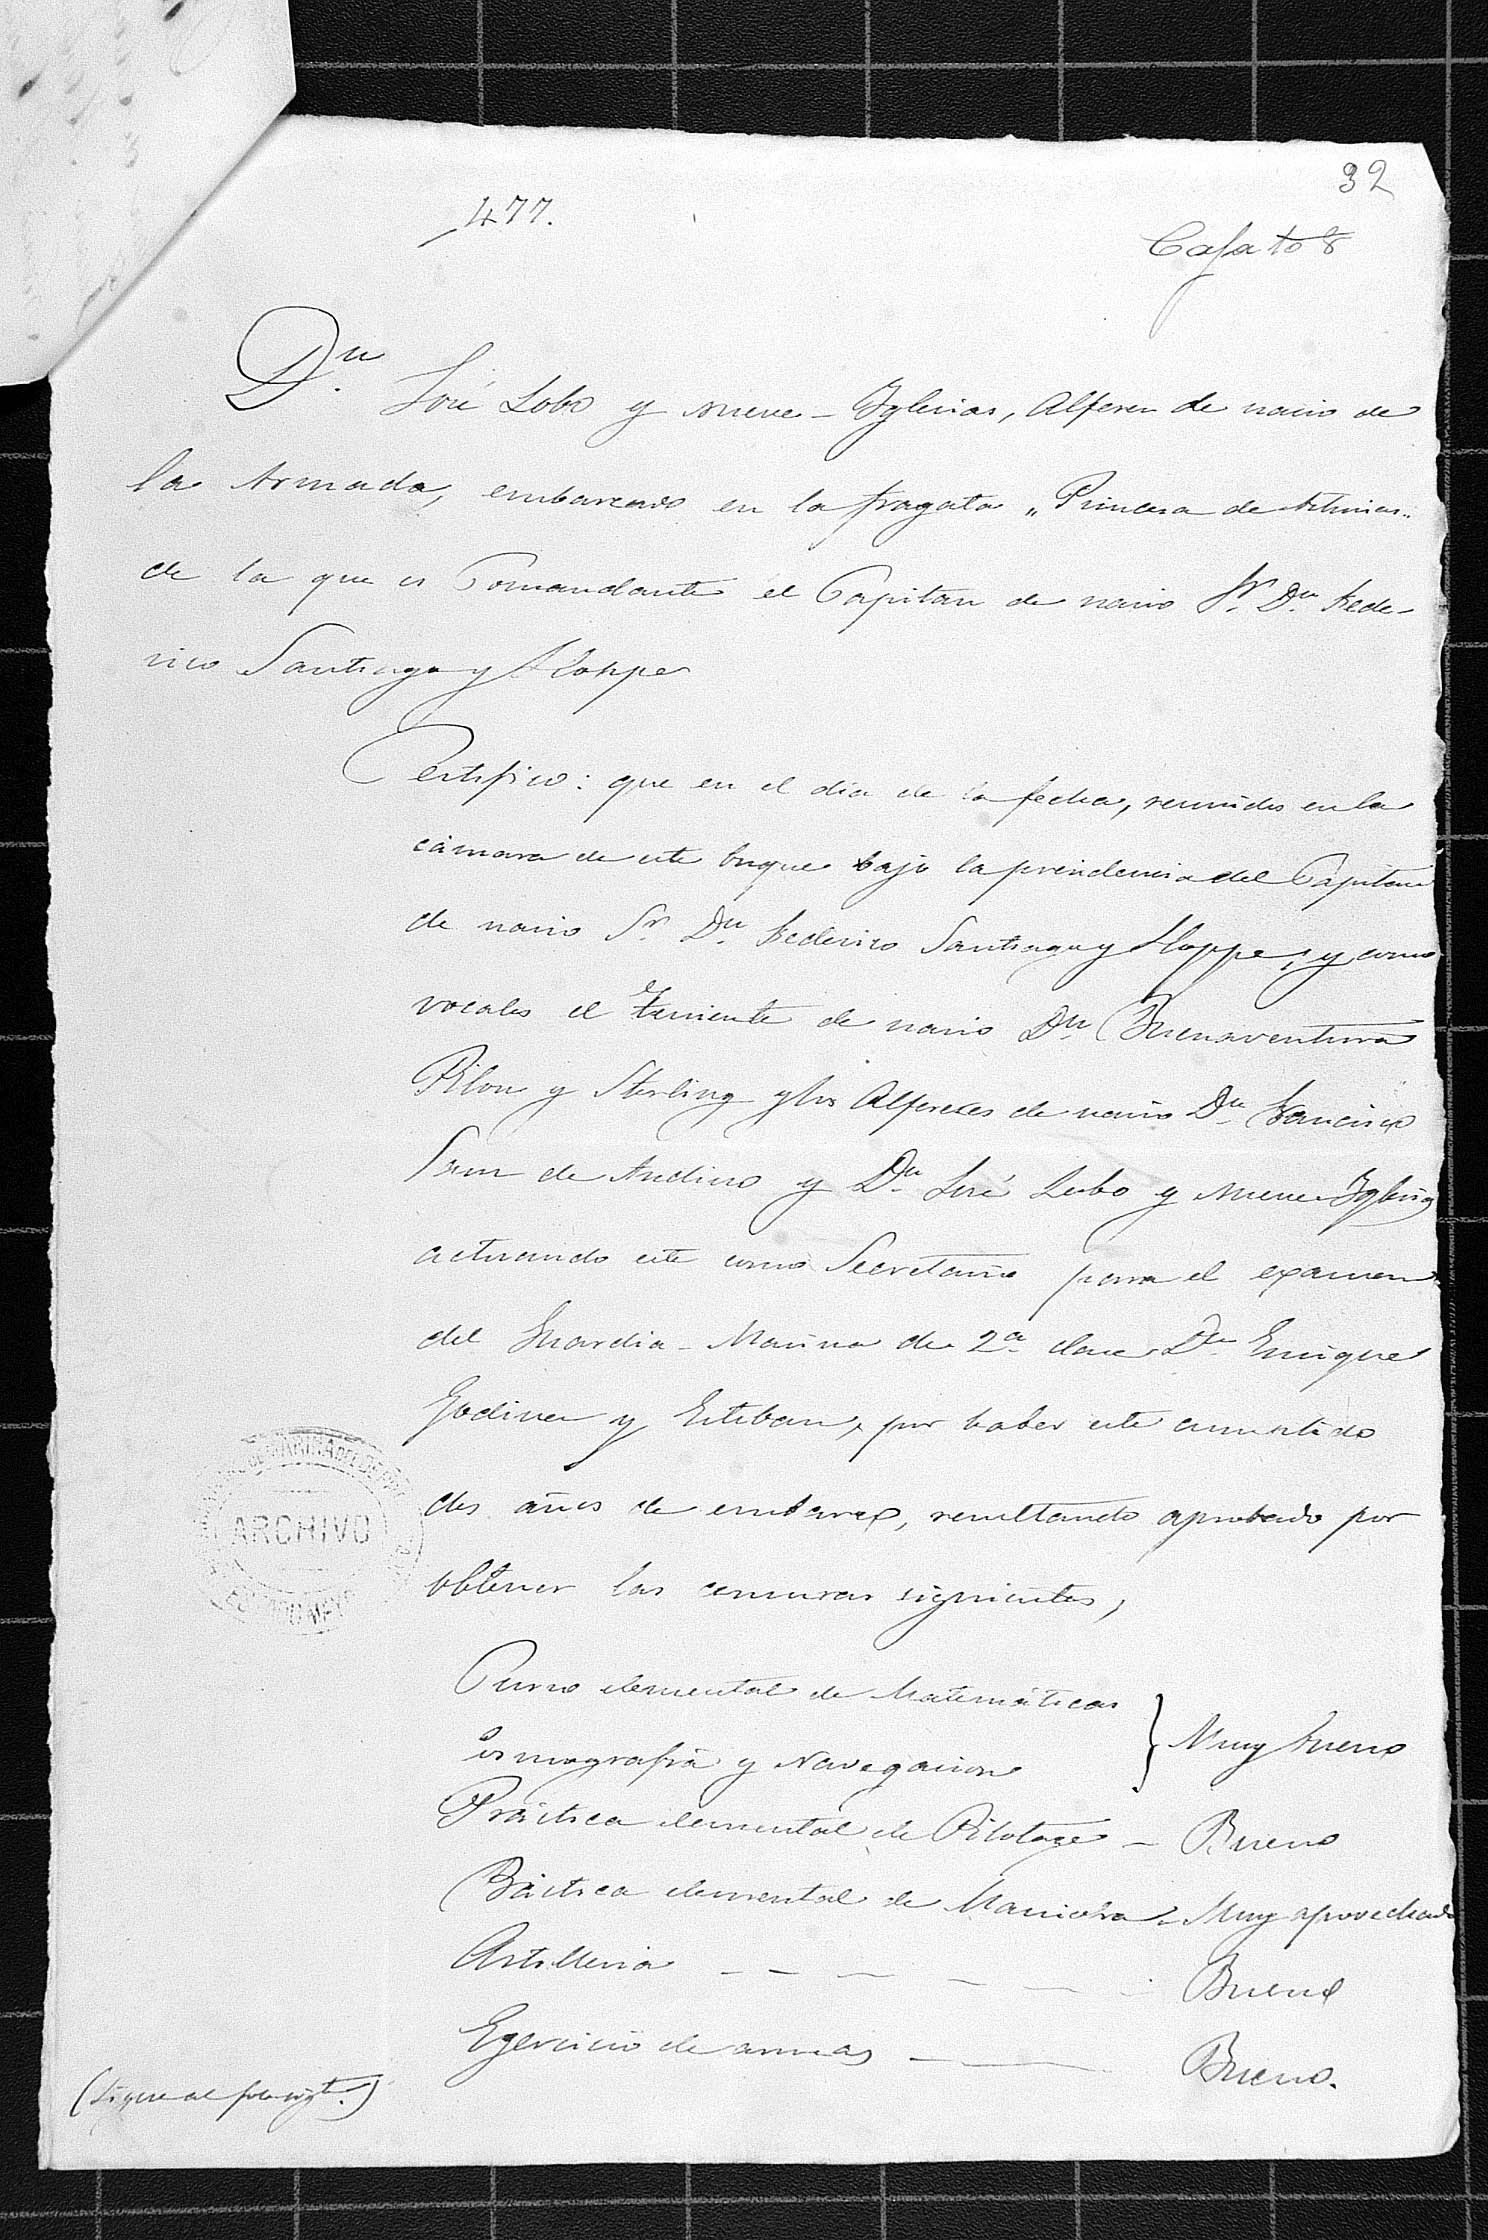 32
477.
Cafato 8
Dn. José Lobo y Nueve-Iglesias, Alferez de navio de
la Armada, embarcado en la fragata "Princesa de Asturias"
de la que es Comandante el Capitan de navio Sr. Dn. Fede-
rico Santiago y Hoppe
Certifico: que en el dia de la fecha, reunidos en la
cámara de este buque bajo la presidencia del Capitan
de navio Sr. Dn. Federico Santiago y Hoppe, y como
vocales el Teniente de navio Dn. Buenaventura
Pilon y Sterling y los Alfereces de navio Dn. Francisco
de Andino y Dn. José Lobo y Nueve-Iglesias
actuando este como Secretario para el examen
del Guardia-Marina de 2a. clase Dn. Enrique
Godinez y Esteban, por haber este cumplido
dos años de embarco, resultando aprobado por
obtener las censuras siguientes,
Curso elemental de Matemáticas
Cosmografía y Navegacion } Muy bueno
Práctica elemental de Pilotage - Bueno
Práctica elemental de Maniobra - Muy aprovechado
Artilleria - - - - - Bueno
Egercicio de armas - - Bueno.
(Sigue al folio sigte.)
ARCHIVO